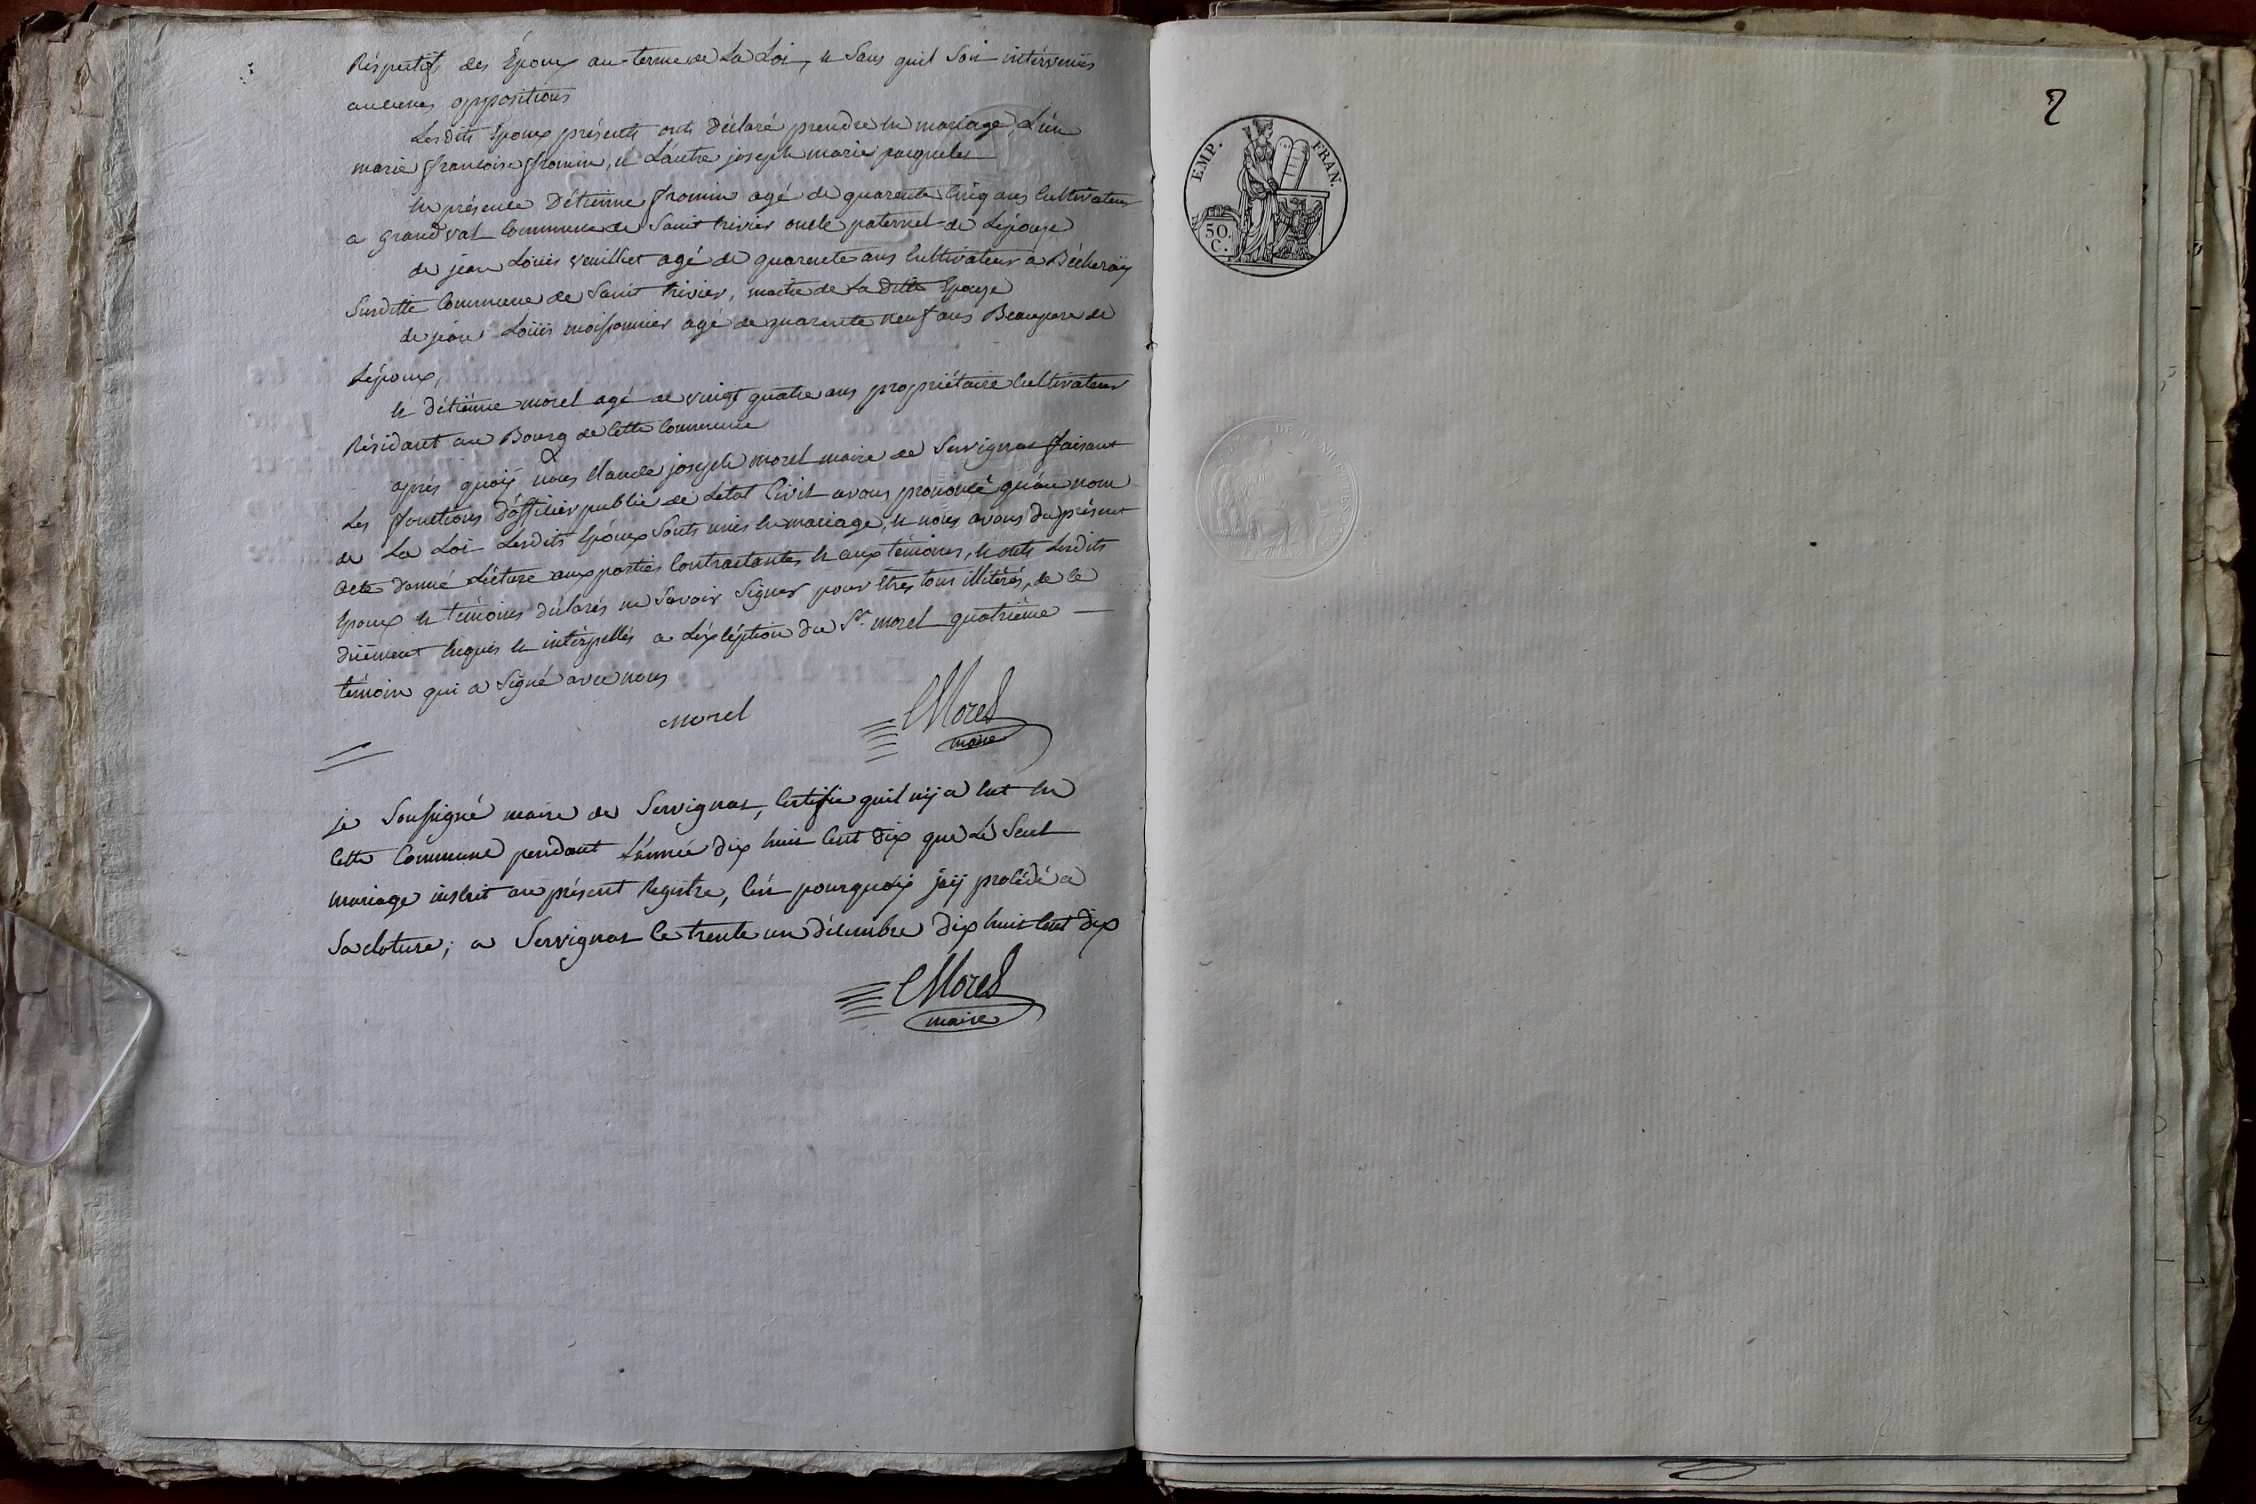 Réspectif des Époux au terme de La Loi, et Sans quil Soit intérvenus
aucunes oppositions
Lesdits Époux présents onts Déclaré prendre en mariage, L'un
marie françoise fromin, et L'autre joseph marie
En présence D'étienne fromin agé de quarente Cinq ans Cultivateur
a grand val Commune de Saint trivier oncle paternel de L'épouze
de jean Loüis veuilliet agé de quarente ans Cultivateur à
Surditte Commune de Saint trivier, maitre de La ditte Epouze
de jean Loüis moissonnier agé de quarente neuf ans Beaupere de
L'époux,
et d'étiénne morel agé de vingt quatre ans propriétaire Cultivateur
Résidant au Bourg de Cette Commune
aprés quoÿ nous Claude joseph morel maire de Servignat faisant
Les fonctions d'officier public de L'état Civil avons prononcé qu'au nom
de La Loi Lesdits époux Sonts unis en mariage, et nous avons du présent
acte donné Lécture aux parties Contractantes et aux témoins, et onts Lesdits
époux et témoins déclarés ne Savoir Signer pour êtres tous illitérés, de ce
duëment Enquis et intérpellés a L'éxcéption du Sr. morel quatriéme
témoin qui a Signé avec nous
Morel
CMorel
maire
je Soussigné maire de Servignat, Certifie quil nÿ a eut en
Cette Commune pendant L'année dix huit Cent dix que Le Seul
mariage inscrit au présent Registre, C'ést pourquoÿ jaÿ procédé a
Sa cloture; a Servignat le trente un décembre dix huit Cent dix
CMorel
maire
2
EMP. FRAN.
50.
C.